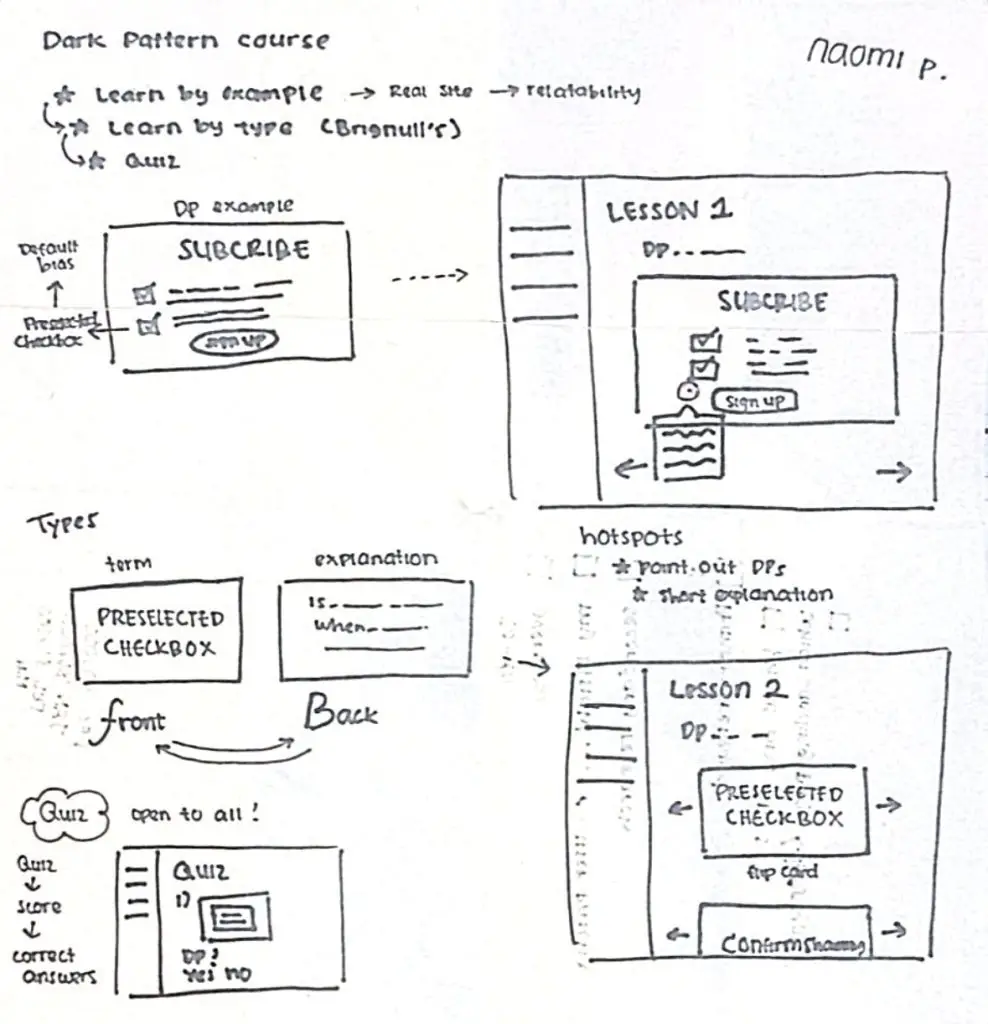 Dark Pattern course
naomi p.
☆ Learn by example → Real site → relatability
☆ Learn by type (Brignull's)
☆ Quiz
DP example
SUBCRIBE
sign up
Default bias
↑
Preselected checkbox
LESSON 1
DP
SUBCRIBE
sign up
hotspots
☆ point out DPs
☆ short explanation
Types
term
PRESELECTED
CHECKBOX
front
explanation
is
when
Back
Lesson 2
DP
PRESELECTED
CHECKBOX
flip card
Confirmshaming
Quiz open to all!
Quiz
↓
score
↓
correct
answers
Quiz
1)
DP?
Yes no